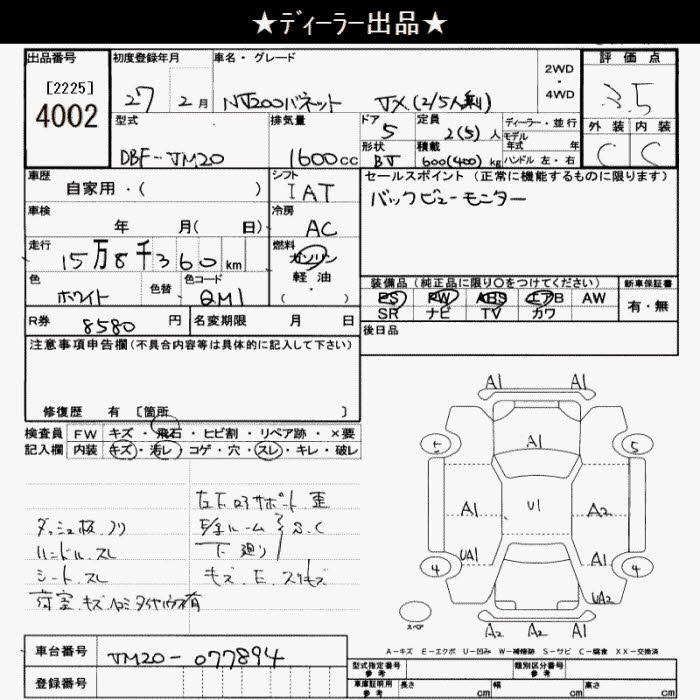 ★ディーラー出品★
出品番号 初度登録年月 車名・グレード 2WD・4WD 評価点
[2225]
4002 27年 2月 NV200バネット VX(2/5人乗) 3.5
型式 排気量 ドア 定員 ディーラー・並行 外装 内装
5 2(5)人 モデル年式 年
DBF-VM20 1600cc 形状 積載 C C
BV 600(400)kg ハンドル 左・右
車歴 シフト セールスポイント(正常に機能するものに限ります)
自家用・( ) IAT バックビューモニター
車検 冷房
年 月( 日) AC
走行 燃料
15万8千360km ガソリン
色 色替 色コード 軽油 装備品(純正品に限り○をつけてください) 新車保証書
ホワイト QM1 ( ) PS PW ABS エアB AW 有・無
SR ナビ TV カワ
R券 8580円 名変期限 月 日 後日品
注意事項申告欄(不具合内容等は具体的に記入して下さい)
修復歴 有 [箇所 ]
検査員 FW キズ・飛石・ヒビ割・リペア跡・×要
記入欄 内装 キズ・汚レ・コゲ・穴・スレ・キレ・破レ
左右コアサポート 歪
ダッシュ板 ノリ
ハンドル スレ 下廻り S.C
シート スレ キズ E スリキズ
荷室 キズ
A1 A1
5 A1 5
A1 U1 A2
UA1 A1
4 4
UA2
スペア A2 A2 A1
A-キズ E-エクボ U-凹み W-補修跡 S-サビ C-腐食 XX-交換済
車台番号 VM20-077894
型式指定番号 参考 類別区分番号 参考
登録番号 車庫証明用 参考 長さ cm 幅 cm 高さ cm